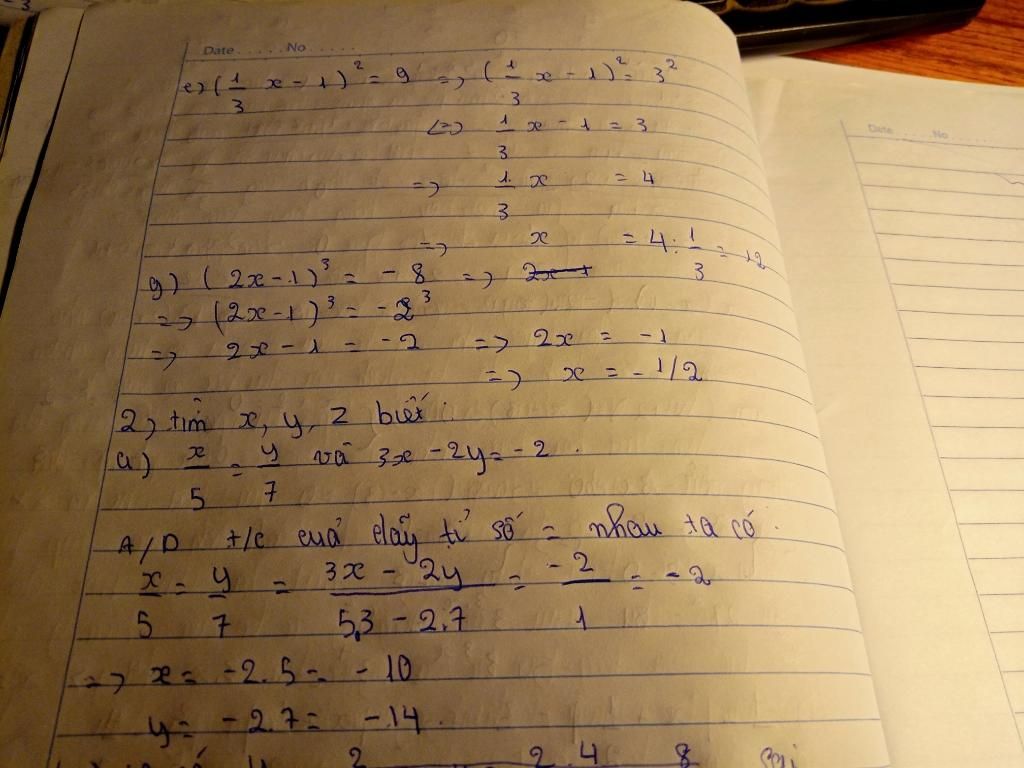 Date ..... No .....
e) (1/3 x - 1)² = 9 => (1/3 x - 1)² = 3²
<=> 1/3 x - 1 = 3
=> 1/3 x = 4
=> x = 4 : 1/3 = 12
g) (2x - 1)³ = - 8 =>
=> (2x - 1)³ = -2³
=> 2x - 1 = -2 => 2x = -1
=> x = - 1/2
2) tìm x, y, z biết :
a) x/5 = y/7 và 3x - 2y = - 2 .
A/D t/c cuả dãy tỉ số = nhau ta có .
x/5 = y/7 = 3x - 2y / 5.3 - 2.7 = -2/1 = - 2
=> x = -2.5 = - 10
y = -2.7 = -14 .
Date ..... No .....